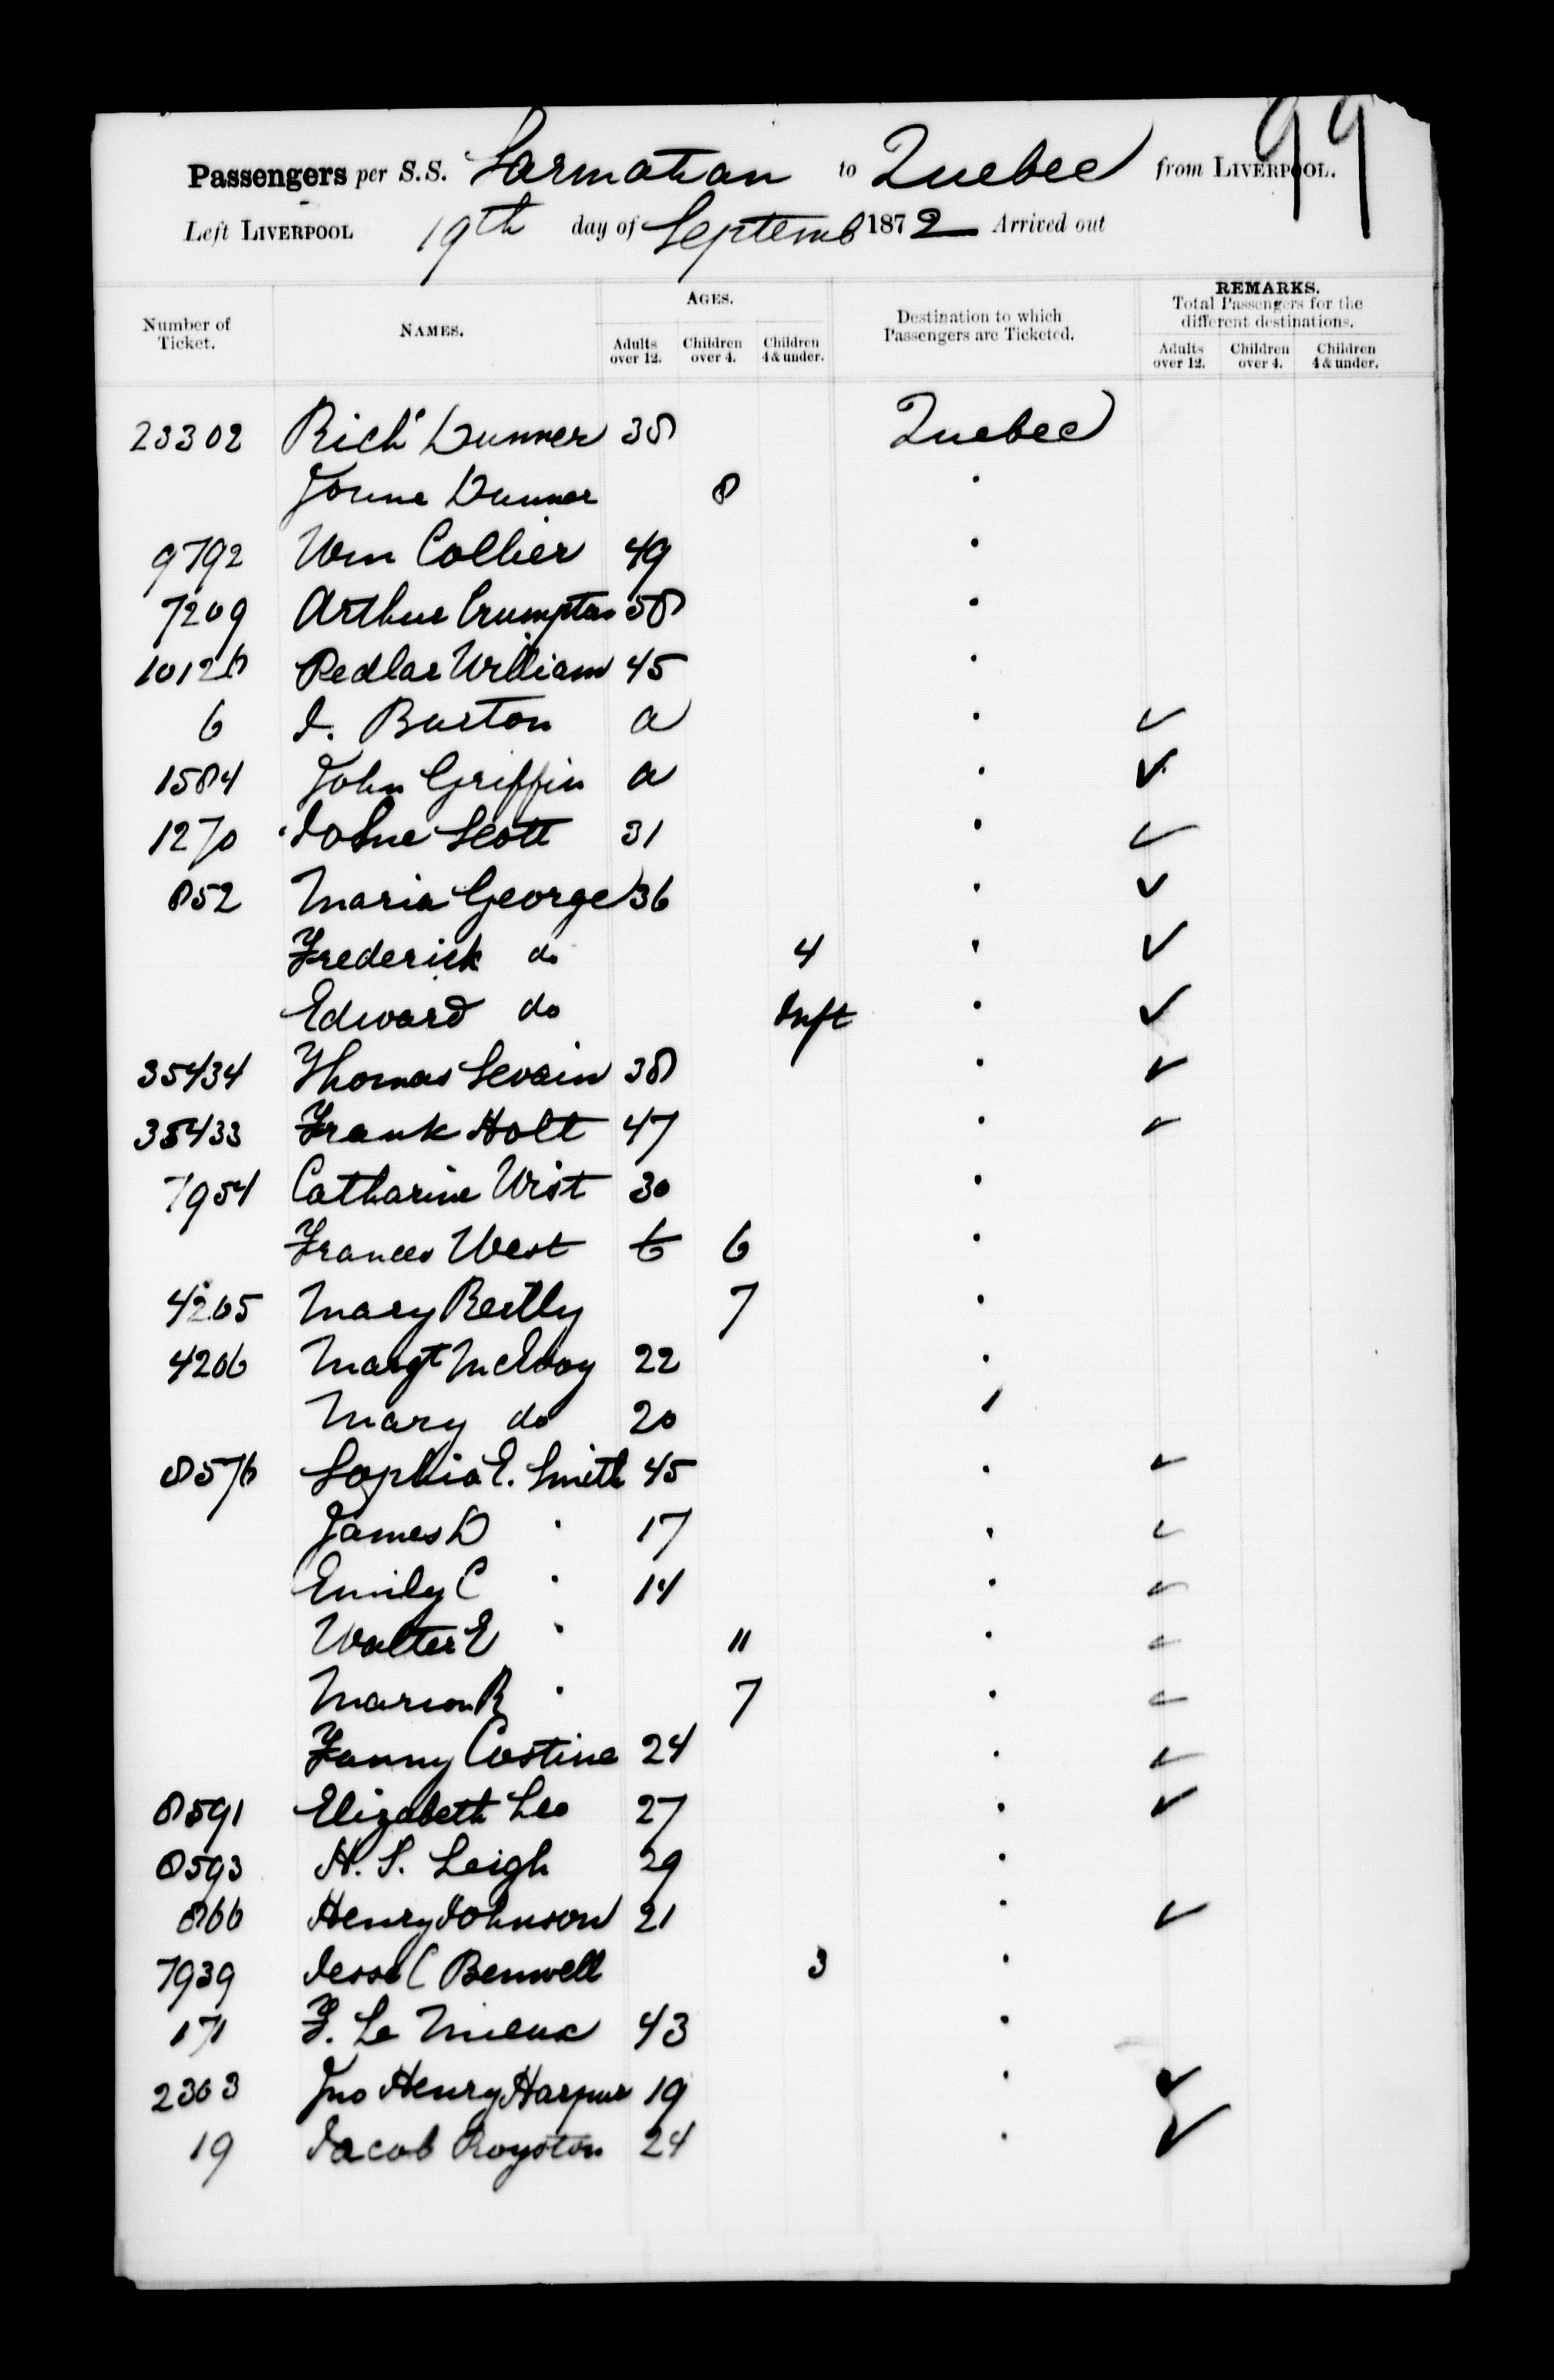 99
Passengers per S.S. Sarmatian to Quebec from LIVERPOOL.
Left LIVERPOOL 19th day of Septemb 1872 Arrived out
Number of Ticket. NAMES. AGES. Destination to which Passengers are Ticketed. REMARKS. Total Passengers for the different destinations.
Adults over 12. Children over 4. Children 4 & under. Adults over 12. Children over 4. Children 4 & under.
23302 Richd Dunner 38 Quebec
Dunner 8 "
9792 Wm Collier 49 "
7209 Arthur Crumpton 58 "
10126 Pedlar William 45 "
6 J. Burton a " ✓
1584 John Griffin a " ✓
1270 Scott 31 " ✓
852 Maria George 36 " ✓
Frederick do 4 " ✓
Edward do Inft " ✓
35434 Thomas 38 " ✓
35433 Frank Holt 47 " ✓
7954 Catharine West 30 "
Frances West 6 6 "
4205 Mary Reilly 7 "
4206 Margt McEvoy 22 "
Mary do 20 "
8576 Sophia E. Smith 45 " ✓
James D " 17 " ✓
Emily C " 14 " ✓
Walter E " 11 " ✓
Marion R " 7 " ✓
Fanny Costine 24 " ✓
8591 Elizabeth Lee 27 " ✓
8593 H. S. Leigh 29 "
866 Henry Johnson 21 " ✓
7939 Jesse C Benwell 3 "
171 F. Le Mieux 43 "
2303 Jno Henry Harpur 19 " ✓
19 Jacob Royston 24 " ✓